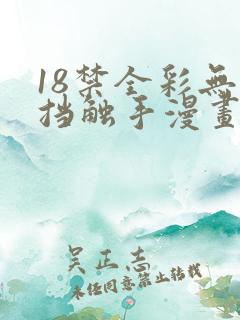 18禁全彩無
挡触手漫畫
吴正志
未经同意禁止转载